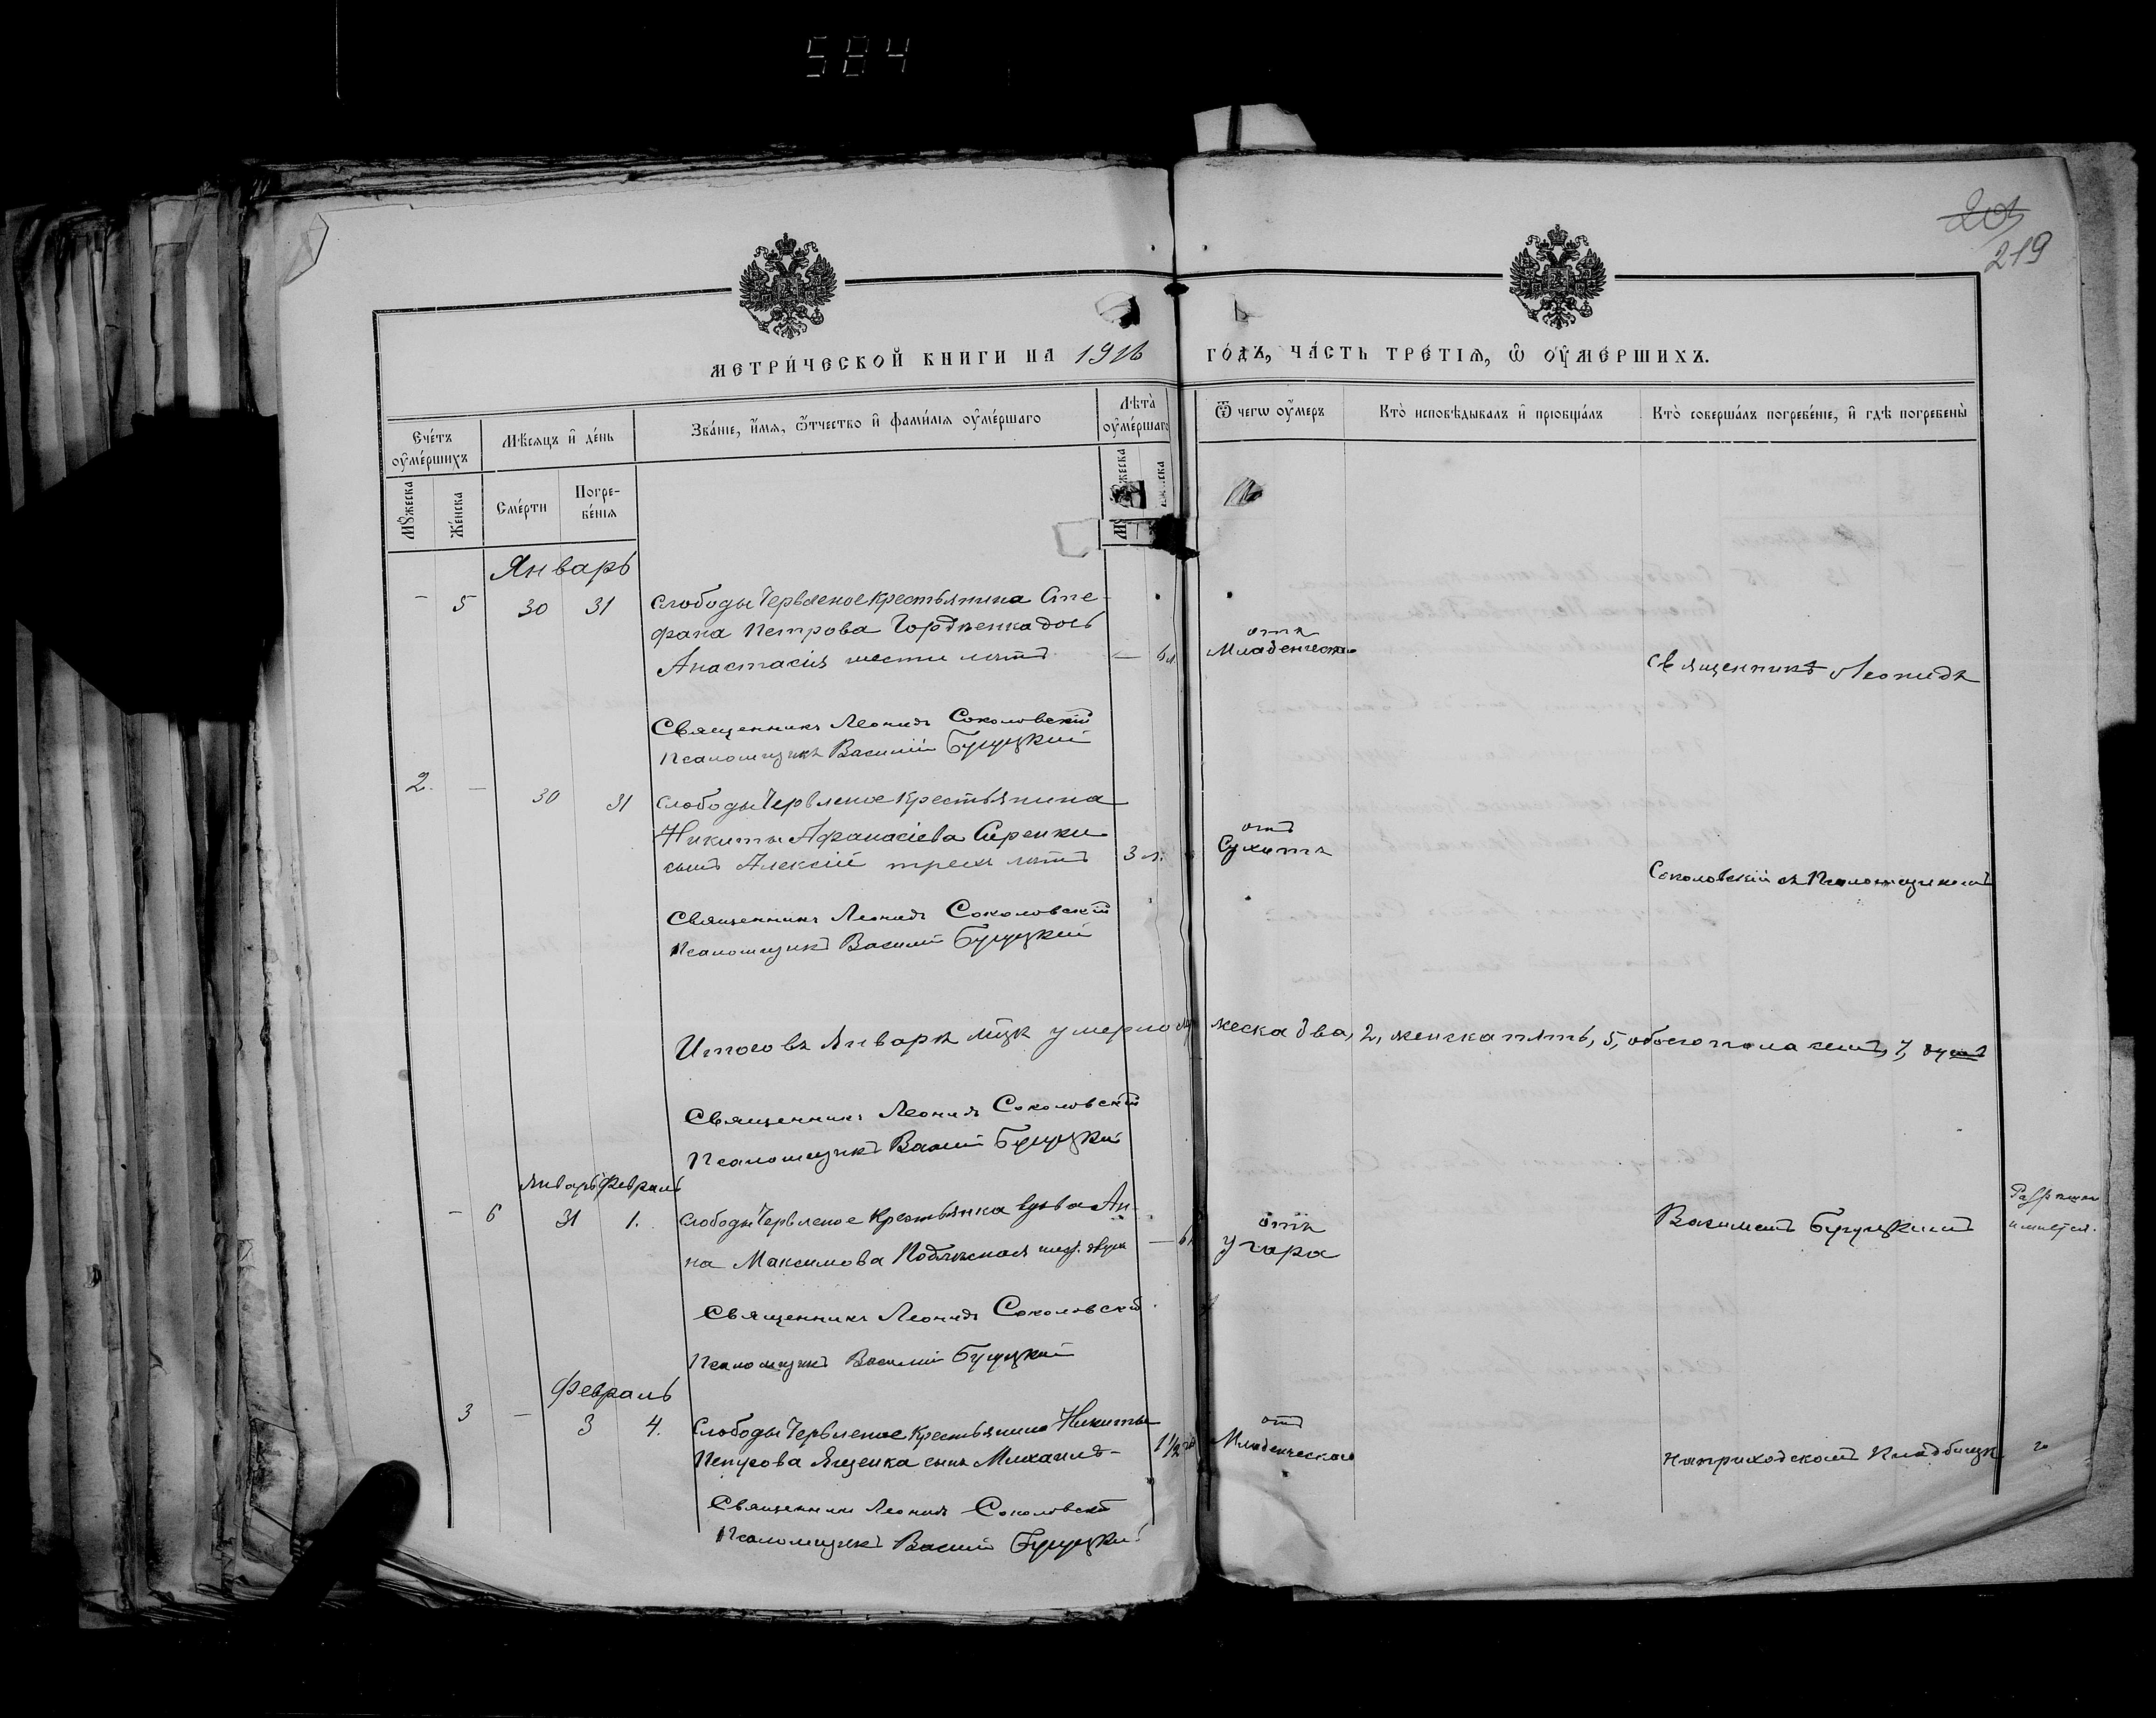 584
203
219
МЕТРИ́ЧЕСКОЙ КНИГИ НА 1916 ГО́ДЪ, ЧА́СТЬ ТРЕ́ТІѦ, Ѡ ОУ҆МЕ́РШИХЪ.
Сче́тъ оумершихъ
Мѣсяцъ и де́нь
Зва́ніе, и́мя, ѿтчество и фами́лія оуме́ршаго
Лѣта̀ оуме́ршаго
Ѿ чегѡ оумеръ
Кто̀ исповѣдывалъ и пріобща́лъ
Кто̀ соверша́лъ погребе́ніе, и гдѣ погребены̀
Мꙋжеска
Же́нска
Сме́рти
Погре-
бе́нія
Январь
- 5 30 31 Слободы Червленое крестьянина Сте-
фана Петрова Гордѣенка дочь
Анастасія шести лѣтъ — 6 л. отъ Младенческаго
Священникъ Леонидъ
Священникъ Леонидъ Соколовскій
Псаломщикъ Василій Бугуцкій
2. — 30 31 Слободы Червленое крестьянина
Никиты Афанасіева Сиренки
сынъ Алексій трехъ лѣтъ 3 л. отъ Сухотъ
Соколовскій съ Псаломщикомъ
Священникъ Леонидъ Соколовскій
Псаломщикъ Василій Бугуцкій
Итого въ Январѣ м-цѣ умерло мужеска два, 2, женска пять, 5, обоего пола семь, 7, душъ
Священникъ Леонидъ Соколовскій
Псаломщикъ Василій Бугуцкій
Январь Февраль
- 6 31 1. Слободы Червленое крестьянка вдова Ан-
на Максимова — отъ угара
Василіемъ Бугуцкимъ
имѣется.
Священникъ Леонидъ Соколовскій
Псаломщикъ Василій Бугуцкій
Февраль
3 — 3 4. Слободы Червленое крестьянина Никиты
Петрова Ященка сынъ Михаилъ 1 1/2 отъ Младенческаго
на приходскомъ кладбищѣ
Священникъ Леонидъ Соколовскій
Псаломщикъ Василій Бугуцкій